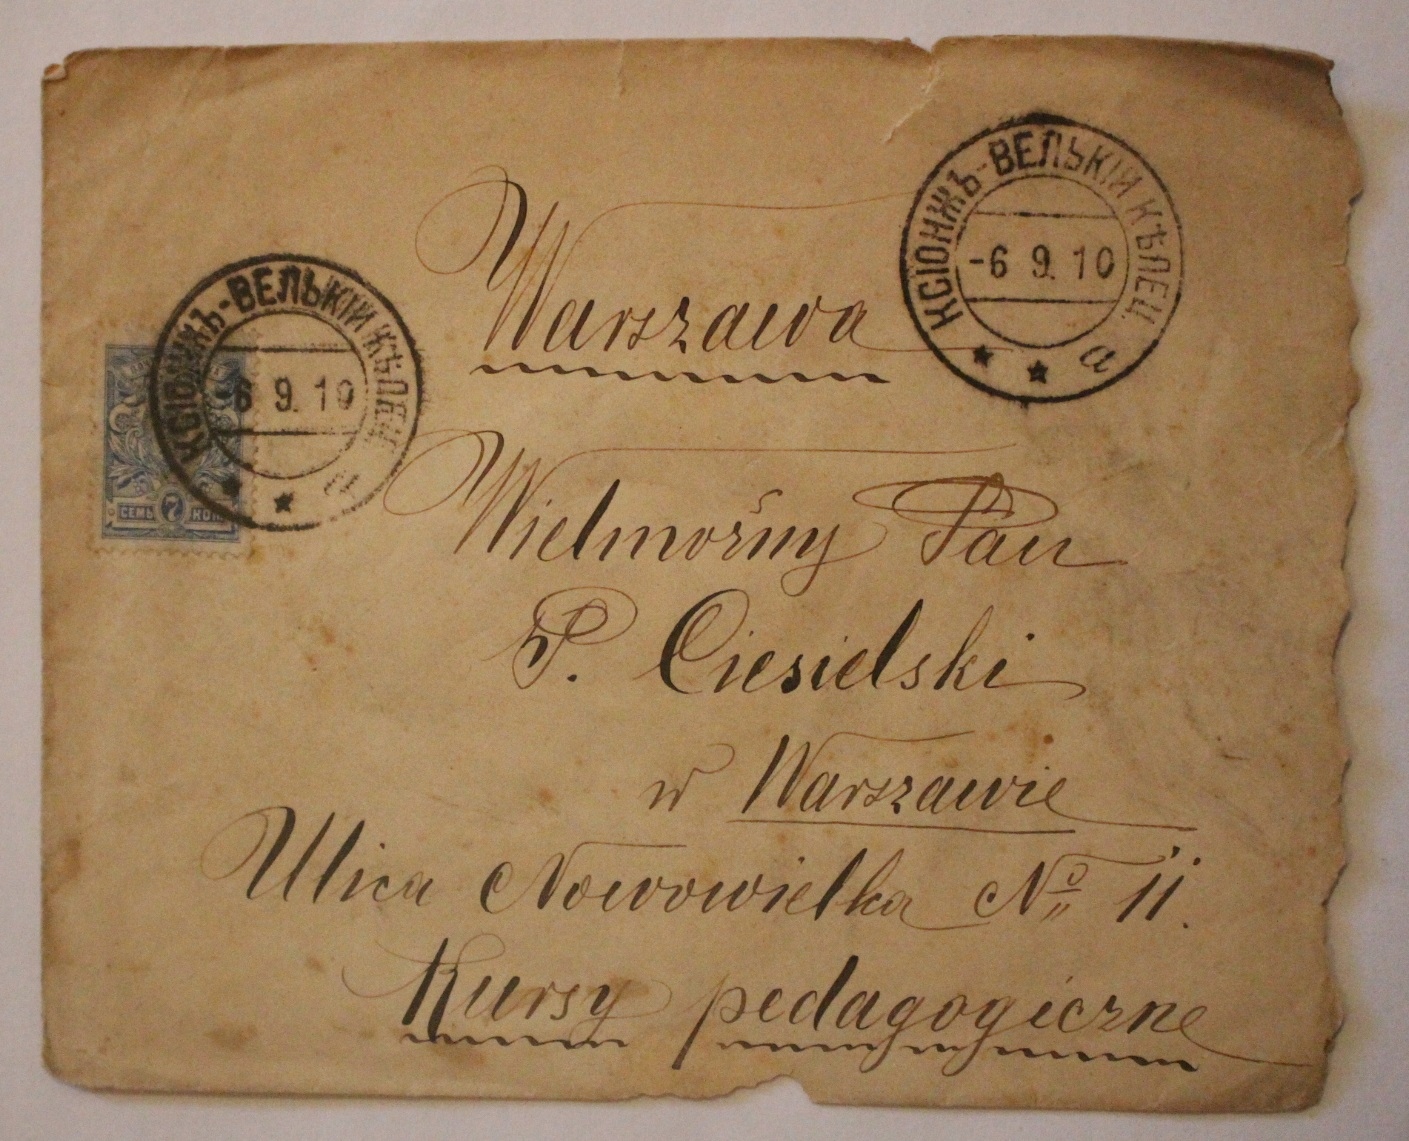 КСІОНЖЪ-ВЕЛЬКІЙ КѢЛЕЦ.
-6 9. 10
а
Warszawa
КСІОНЖЪ-ВЕЛЬКІЙ КѢЛЕЦ.
-6 9. 10
а
СЕМЬ 7 КОП.
Wielmożny Pan
P. Ciesielski
w Warszawie
Ulica Nowowielka No 11.
Kursy pedagogiczne